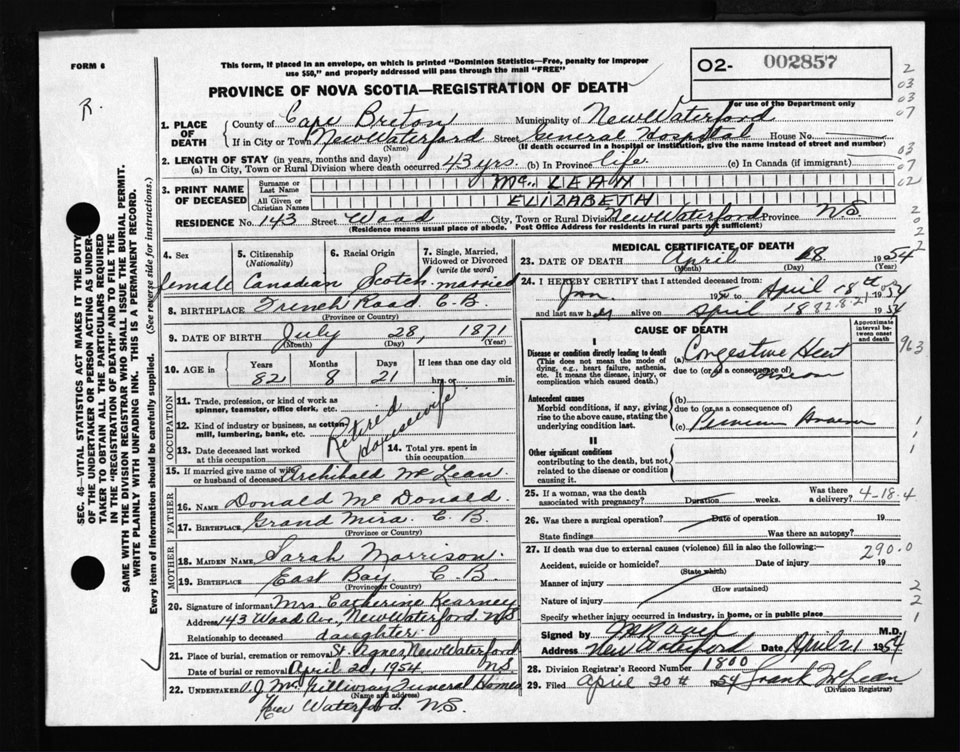 FORM 6
This form, if placed in an envelope, on which is printed "Dominion Statistics—Free, penalty for improper
use $50," and properly addressed will pass through the mail "FREE"
O2- 002857
PROVINCE OF NOVA SCOTIA—REGISTRATION OF DEATH
For use of the Department only
R.
1. PLACE OF DEATH
County of Cape Breton Municipality of New Waterford
If in City or Town New Waterford Street General Hospital House No.
(Name) (If death occurred in a hospital or institution, give the name instead of street and number)
2. LENGTH OF STAY (in years, months and days)
(a) In City, Town or Rural Division where death occurred 43 yrs. (b) In Province life (c) In Canada (if immigrant)
3. PRINT NAME OF DECEASED
Surname or Last Name Mc LEAN
All Given or Christian Names ELIZABETH
RESIDENCE No. 143 Street Wood City, Town or Rural Division New Waterford Province N.S.
(Residence means usual place of abode. Post Office Address for residents in rural parts not sufficient)
4. Sex
5. Citizenship (Nationality)
6. Racial Origin
7. Single, Married, Widowed or Divorced (write the word)
female Canadian Scotch married
8. BIRTHPLACE French Road C.B.
(Province or Country)
9. DATE OF BIRTH July 28, 1871
(Month) (Day) (Year)
10. AGE in Years Months Days If less than one day old
82 8 21 hrs. or min.
OCCUPATION
11. Trade, profession, or kind of work as spinner, teamster, office clerk, etc.
12. Kind of industry or business, as cotton mill, lumbering, bank, etc.
Retired housewife
13. Date deceased last worked at this occupation
14. Total yrs. spent in this occupation
15. If married give name of wife or husband of deceased Archibald McLean.
FATHER
16. NAME Donald McDonald.
17. BIRTHPLACE Grand Mira. C.B.
(Province or Country)
MOTHER
18. MAIDEN NAME Sarah Morrison.
19. BIRTHPLACE East Bay. C.B.
(Province or Country)
20. Signature of informant Mrs. Catherine Kearney
Address 143 Wood Ave, New Waterford. N.S.
Relationship to deceased daughter.
21. Place of burial, cremation or removal St. Agnes, New Waterford N.S.
Date of burial or removal April 20, 1954
22. UNDERTAKER V.J. McGillivray Funeral Homes
(Name and address)
New Waterford. N.S.
MEDICAL CERTIFICATE OF DEATH
23. DATE OF DEATH April 18 1954
(Month) (Day) (Year)
24. I HEREBY CERTIFY that I attended deceased from:
Jan 19 to April 18th 1954
and last saw her alive on April 18 82.8.21 1954
CAUSE OF DEATH
Approximate interval between onset and death
I
Disease or condition directly leading to death
(This does not mean the mode of dying, e.g., heart failure, asthenia, etc. It means the disease, injury, or complication which caused death.)
(a) Congestive Heart
due to (or as a consequence of)
Antecedent causes
Morbid conditions, if any, giving rise to the above cause, stating the underlying condition last.
(b)
due to (or as a consequence of)
(c) Pernicious Anaemia
II
Other significant conditions
contributing to the death, but not related to the disease or condition causing it.
25. If a woman, was the death associated with pregnancy? Duration weeks. Was there a delivery? 4-18.4
26. Was there a surgical operation? Date of operation 19
State findings Was there an autopsy?
27. If death was due to external causes (violence) fill in also the following:— 290.0
Accident, suicide or homicide? Date of injury 19
(State which)
Manner of injury
(How sustained)
Nature of injury
Specify whether injury occurred in industry, in home, or in public place
Signed by M.D.
Address New Waterford Date April 21 1954
28. Division Registrar's Record Number 1800
29. Filed April 20th 1954 Frank McLean
(Division Registrar)
SEC. 46—VITAL STATISTICS ACT MAKES IT THE DUTY
OF THE UNDERTAKER OR PERSON ACTING AS UNDER-
TAKER TO OBTAIN ALL THE PARTICULARS REQUIRED
IN THE "REGISTRATION OF DEATH" AND TO FILE THE
SAME WITH THE DIVISION REGISTRAR WHO SHALL ISSUE THE BURIAL PERMIT.
WRITE PLAINLY WITH UNFADING INK. THIS IS A PERMANENT RECORD.
Every item of Information should be carefully supplied. (See reverse side for instructions.)
2
03
03
07
03
07
02
2
0
2
2
963
1
1
1
2
2
1